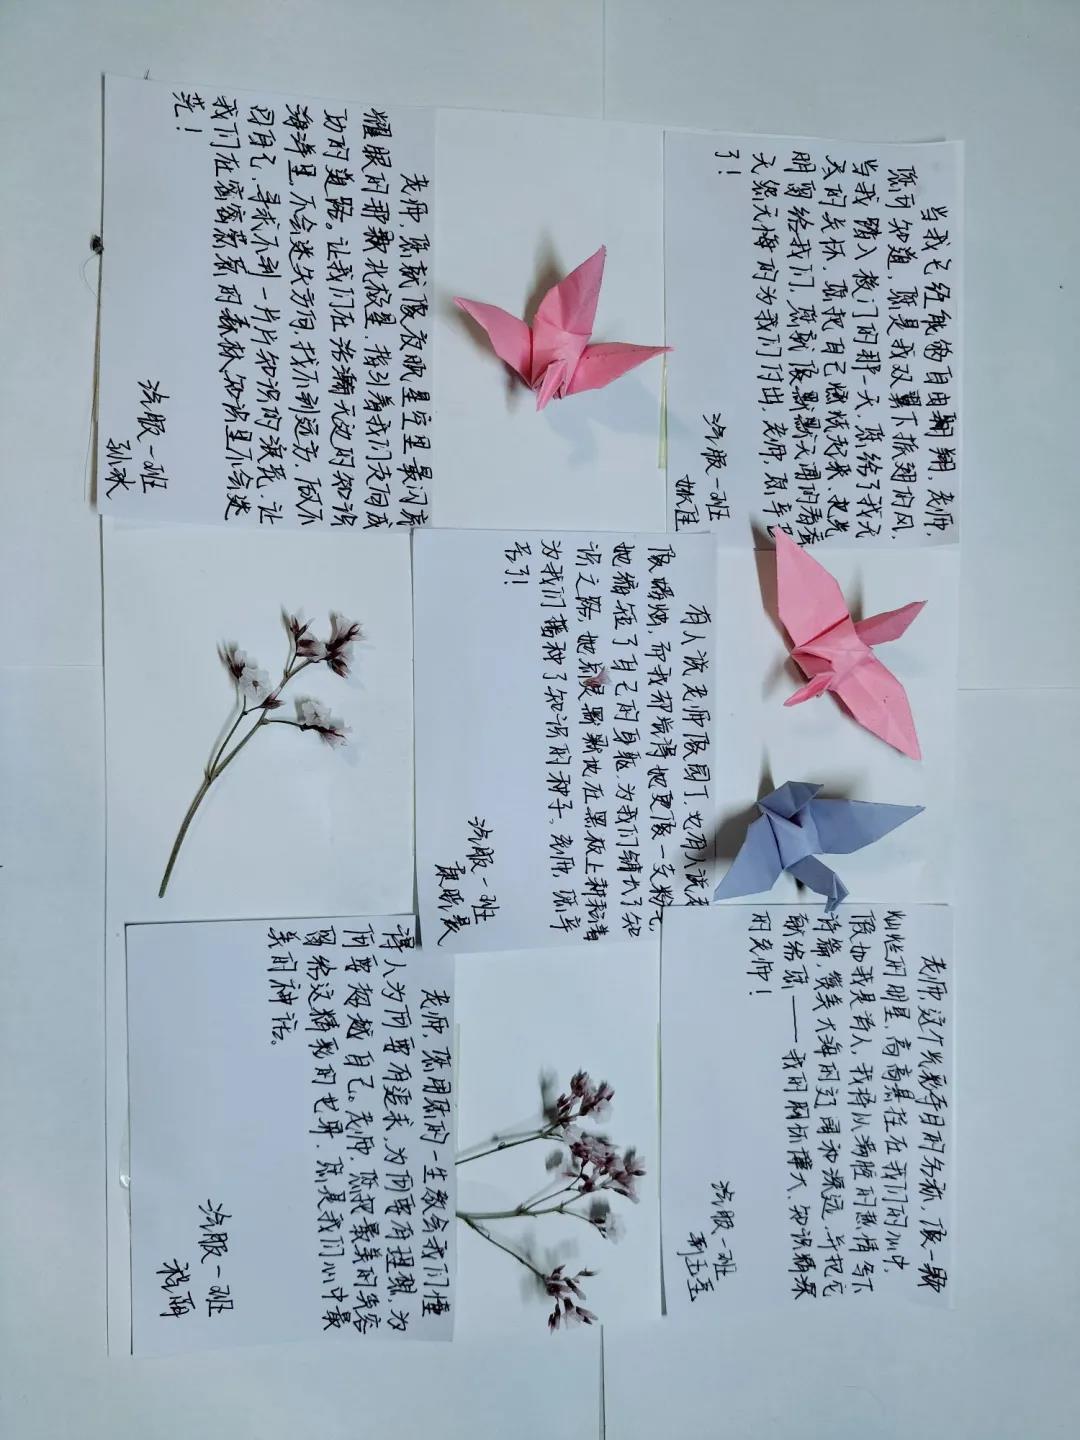 当我已经能够自由翱翔,老师,
您可知道,您是我双翼下振翅的风,
当我踏入校门的那一天,您给了我无
尽的关怀,您把自己燃烧起来,把光
明留给我们,您就像默默无闻的春蚕
无怨无悔的为我们付出,老师,您辛苦
了!
汽服一班
姚佳
老师,这个光彩夺目的名称,像一颗
灿烂的明星,高高悬挂在我们的心中,
假如我是诗人,我将以满腔的热情写下
诗篇,赞美大海的辽阔和深远,并把它
献给您——我的胸怀博大,知识精深
的老师!
汽服一班
有人说老师像园丁,也有人说老
像蜡烛,而我却觉得她更像一支粉笔,
她缩短了自己的身躯,为我们铺长了知
识之路,她总是默默地在黑板上耕耘着
为我们播种了知识的种子。老师,您辛
苦了!
汽服一班
老师,您就像夜晚星空里最闪亮
耀眼的那颗北极星,指引着我们走向成
功的道路。让我们在浩瀚无边的知识
海洋里,不会迷失方向,找不到远方,做不
回自己,寻求不到一片片知识的浪花,让
我们在密密麻麻的森林知识里不会迷
茫!
汽服一班
孙冰
老师,您用您的一生教会我们懂
得人为何要有追求,为何要有理想,为
何要超越自己。老师,您把最美的笑容
留给这精彩的世界,您是我们心中最
美的神话。
汽服一班